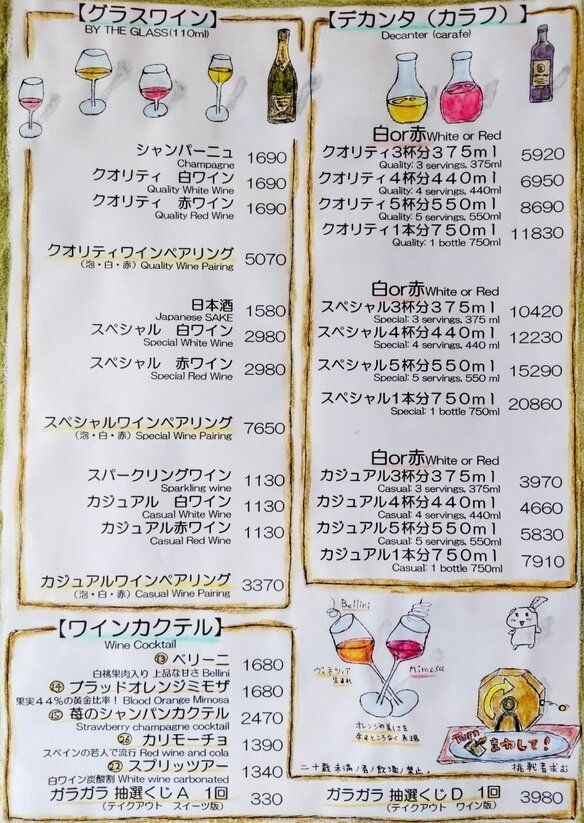 【グラスワイン】
BY THE GLASS(110ml)
シャンパーニュ 1690
Champagne
クオリティ 白ワイン 1690
Quality White Wine
クオリティ 赤ワイン 1690
Quality Red Wine
クオリティワインペアリング 5070
(泡・白・赤) Quality Wine Pairing
日本酒 1580
Japanese SAKE
スペシャル 白ワイン 2980
Special White Wine
スペシャル 赤ワイン 2980
Special Red Wine
スペシャルワインペアリング 7650
(泡・白・赤) Special Wine Pairing
スパークリングワイン 1130
Sparkling wine
カジュアル 白ワイン 1130
Casual White Wine
カジュアル赤ワイン 1130
Casual Red Wine
カジュアルワインペアリング 3370
(泡・白・赤) Casual Wine Pairing
【デカンタ(カラフ)】
Decanter (carafe)
白or赤White or Red
クオリティ3杯分375ml 5920
Quality: 3 servings, 375ml
クオリティ4杯分440ml 6950
Quality: 4 servings, 440ml
クオリティ5杯分550ml 8690
Quality: 5 servings, 550ml
クオリティ1本分750ml 11830
Quality: 1 bottle 750ml
白or赤White or Red
スペシャル3杯分375ml 10420
Special: 3 servings, 375 ml
スペシャル4杯分440ml 12230
Special: 4 servings, 440 ml
スペシャル5杯分550ml 15290
Special: 5 servings, 550 ml
スペシャル1本分750ml 20860
Special: 1 bottle 750ml
白or赤White or Red
カジュアル3杯分375ml 3970
Casual: 3 servings, 375ml
カジュアル4杯分440ml 4660
Casual: 4 servings, 440ml
カジュアル5杯分550ml 5830
Casual: 5 servings, 550ml
カジュアル1本分750ml 7910
Casual: 1 bottle 750ml
【ワインカクテル】
Wine Cocktail
⑬ ベリーニ 1680
白桃果肉入り 上品な甘さ Bellini
⑭ ブラッドオレンジミモザ 1680
果実44%の黄金比率! Blood Orange Mimosa
⑮ 苺のシャンパンカクテル 2470
Strawberry champagne cocktail
カリモーチョ 1390
スペインの若人で流行 Red wine and cola
㉒ スプリッツアー 1340
白ワイン炭酸割 White wine carbonated
ガラガラ 抽選くじA 1回 330
(テイクアウト スイーツ版)
Bellini
ヴェネツィア
生まれ
Mimosa
オレンジの美しさを
余すところなく表現
Turn
まわして!
二十歳未満ノ者ノ飲酒ノ禁止.
挑戦者求む
ガラガラ 抽選くじD 1回 3980
(テイクアウト ワイン版)